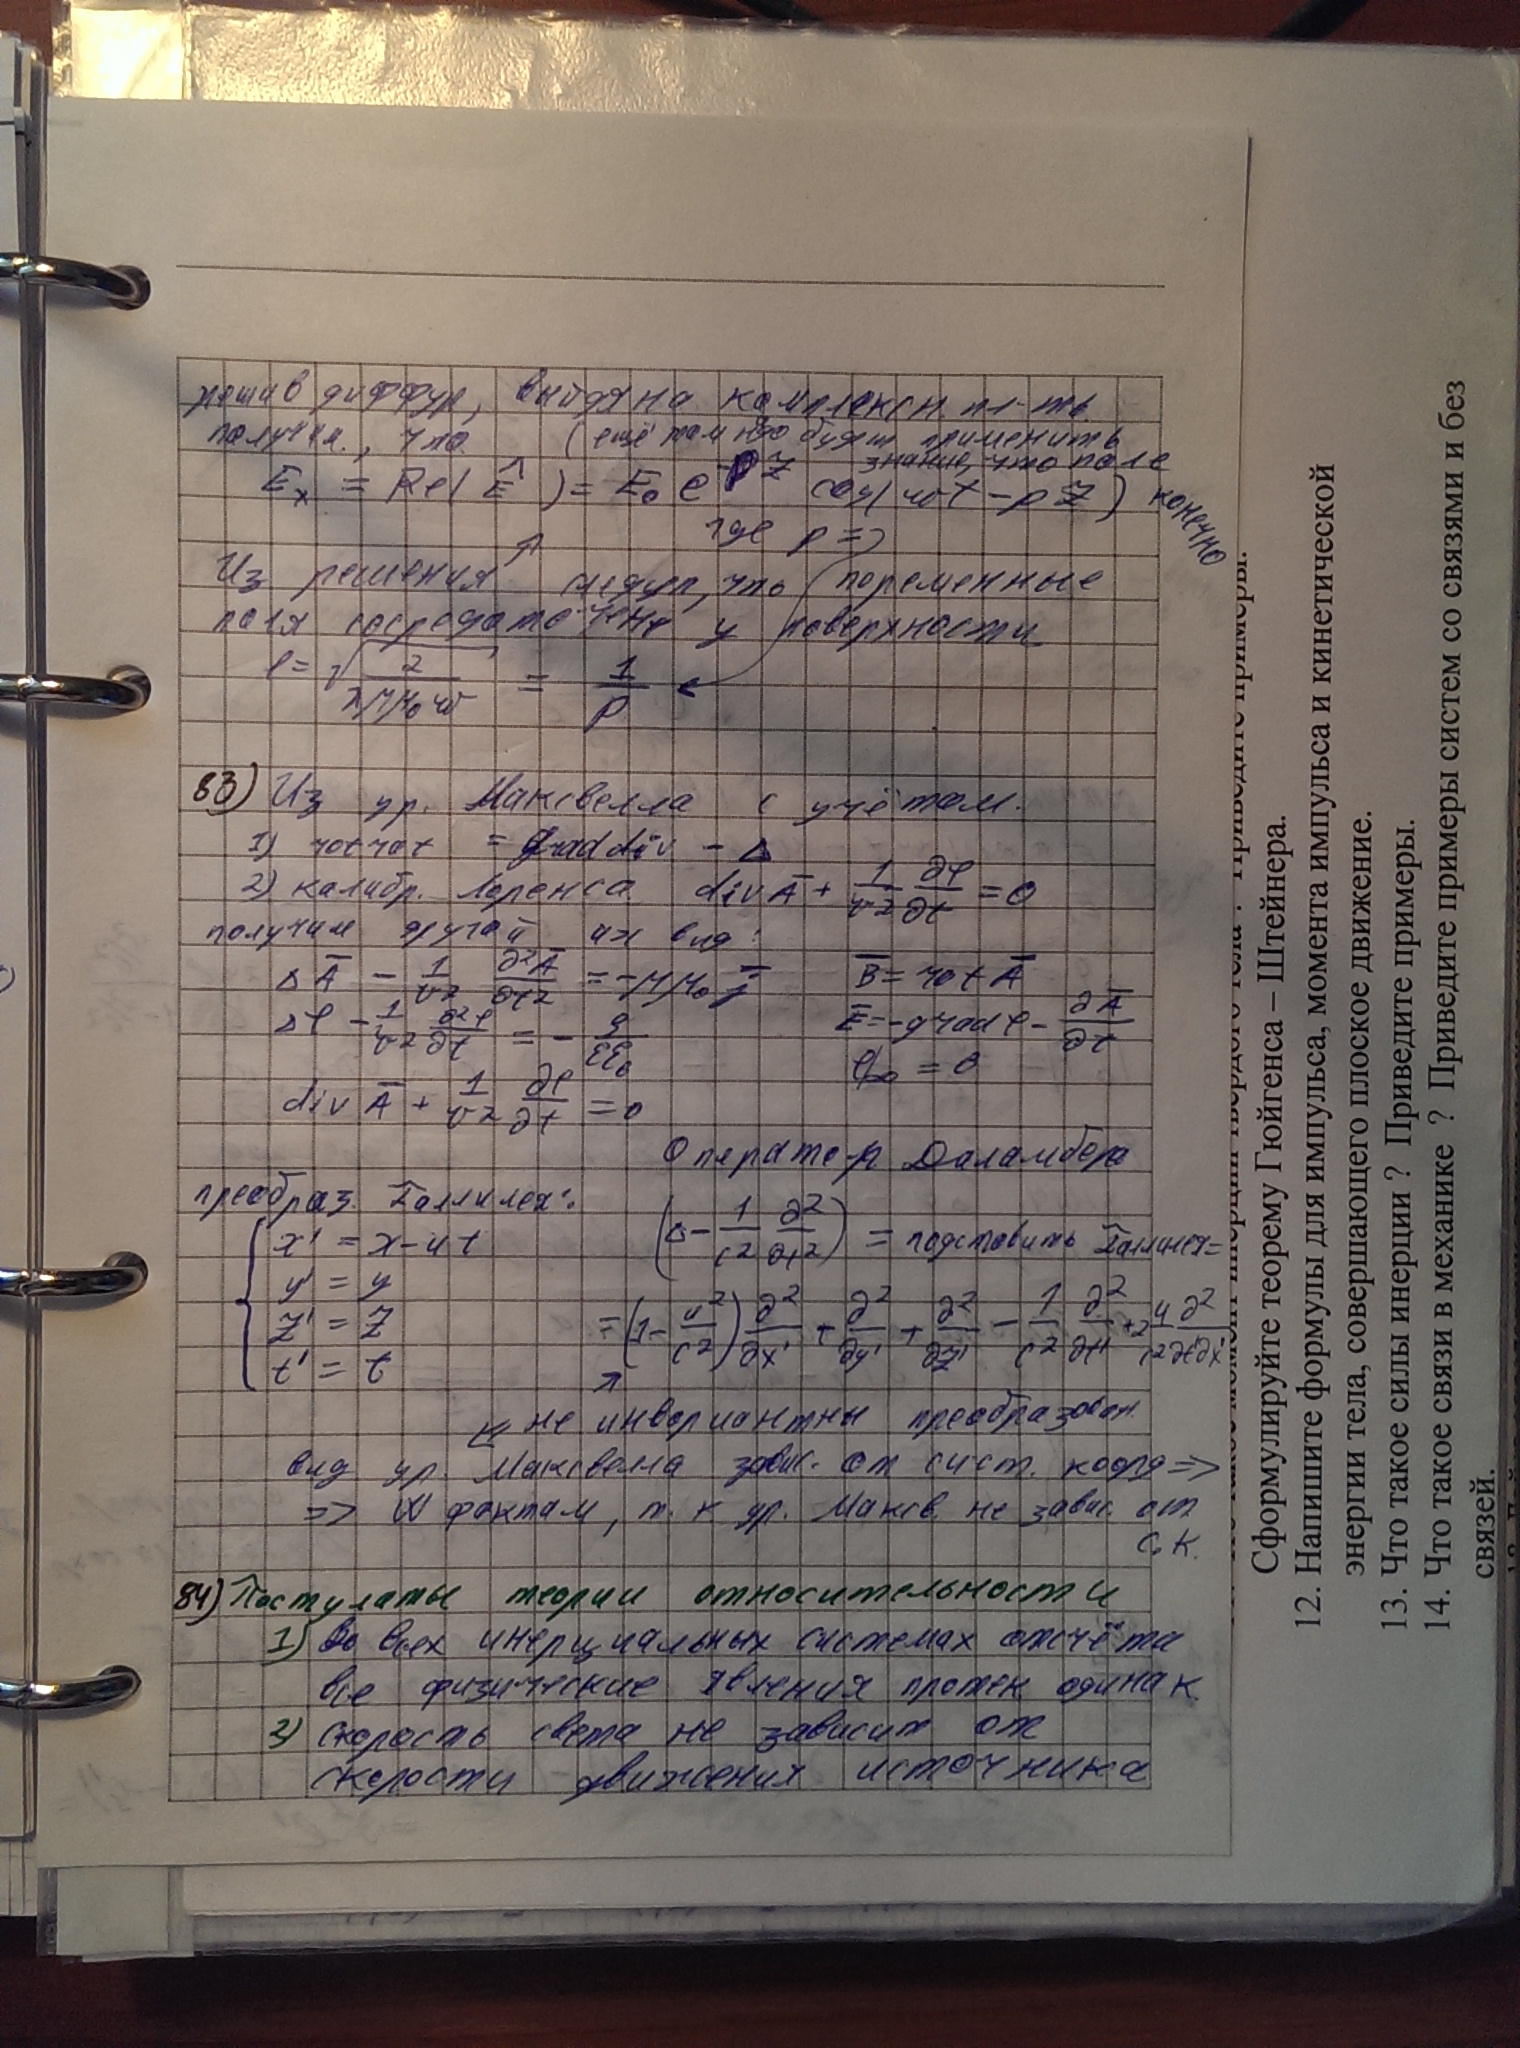 решив диффур, выйдя на комплексн. пл-ть
получим, что (ещё там надо будет применить
знание, что поле
конечно
Eₓ = Re(Ê) = E₀ e^(-pz) cos(wt - pz)
где p =
Из решения следует, что переменные
поля сосредоточены у поверхности
l = √(2/(λμμ₀w)) = 1/p
83) Из ур. Максвелла с учётом.
1) rot rot = grad div - Δ
2) калибр. Лоренса div A̅ + 1/v² ∂φ/∂t = 0
получим другой их вид:
ΔA̅ - 1/v² ∂²A̅/∂t² = -μμ₀ j̅ B̅ = rot A̅
Δφ - 1/v² ∂²φ/∂t = - ρ/εε₀ E̅ = -grad φ - ∂A̅/∂t
φ∞ = 0
div A̅ + 1/v² ∂φ/∂t = 0
Оператор Даламбера
преобраз. Галлилея:
x' = x - ut (Δ - 1/c² ∂²/∂t²) = подставить Галлилея =
y' = y
z' = z = (1 - u²/c²) ∂²/∂x' + ∂²/∂y' + ∂²/∂z' - 1/c² ∂²/∂t' + 2 u/c² ∂²/∂t'∂x'
t' = t
не инвариантны преобразован.
вид ур. Максвелла завис. от сист. коорд =>
=> W фактам, т. к ур. Максв. не завис. от
С. К.
84) Постулаты теории относительности
1) Во всех инерциальных системах отсчёта
все физические явления протек одинак.
2) скорость света не зависит от
скорости движения источника
Сформулируйте теорему Гюйгенса – Штейнера.
12. Напишите формулы для импульса, момента импульса и кинетической
энергии тела, совершающего плоское движение.
13. Что такое силы инерции ? Приведите примеры.
14. Что такое связи в механике ? Приведите примеры систем со связями и без
связей.